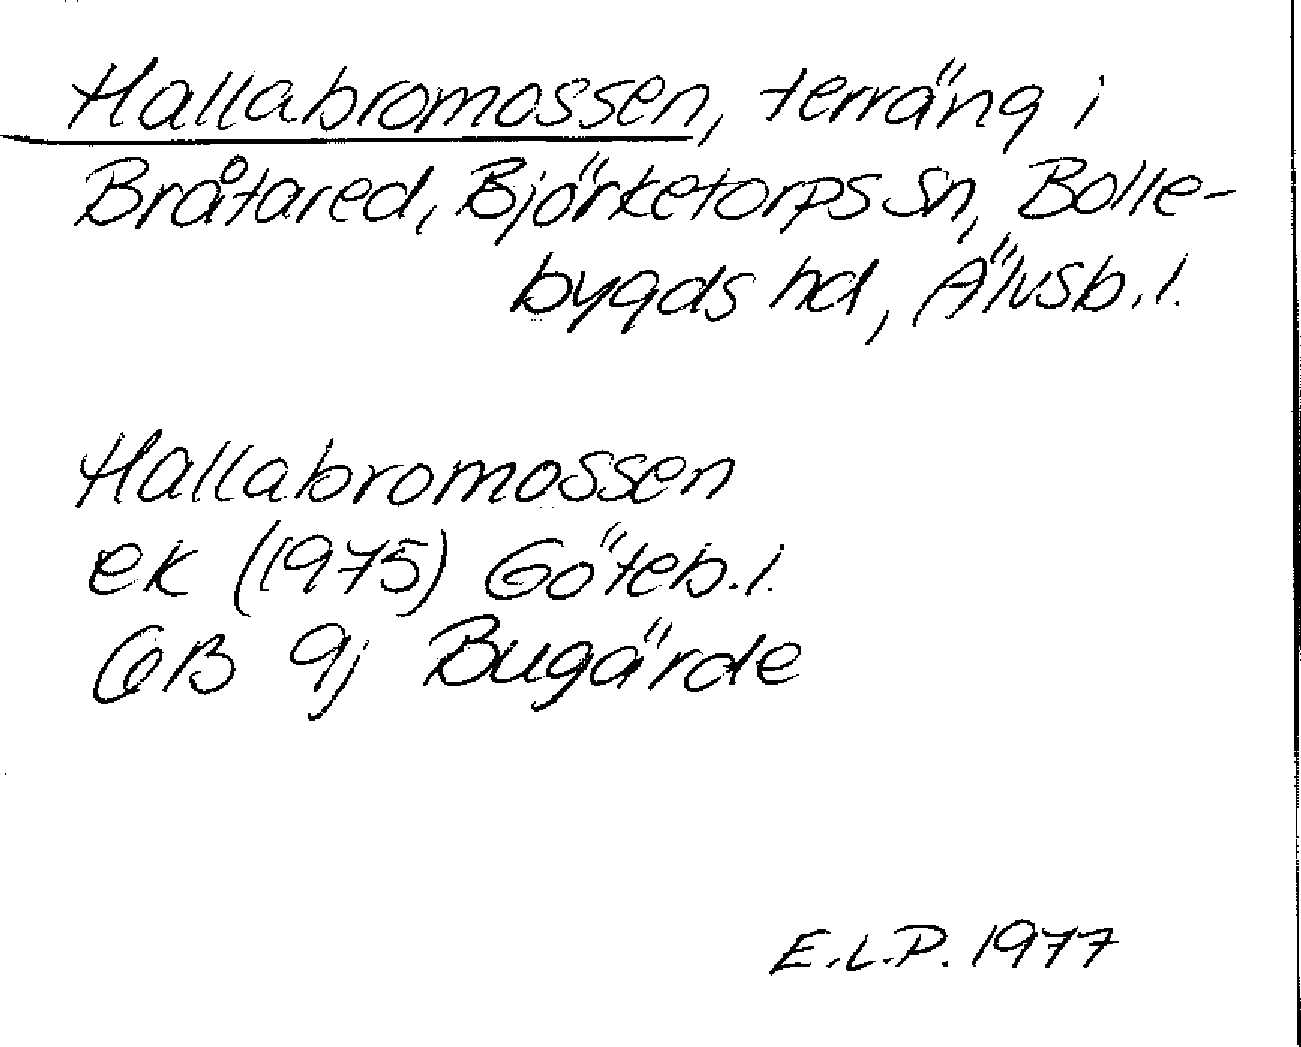 Hallabromossen, terräng i
Bråtared, Björketorps sn, Bolle-
bygds hd, Älvsb. l.
Hallabromossen
ek (1975) Göteb. l.
6B 9j Bugärde
E.L.P. 1977